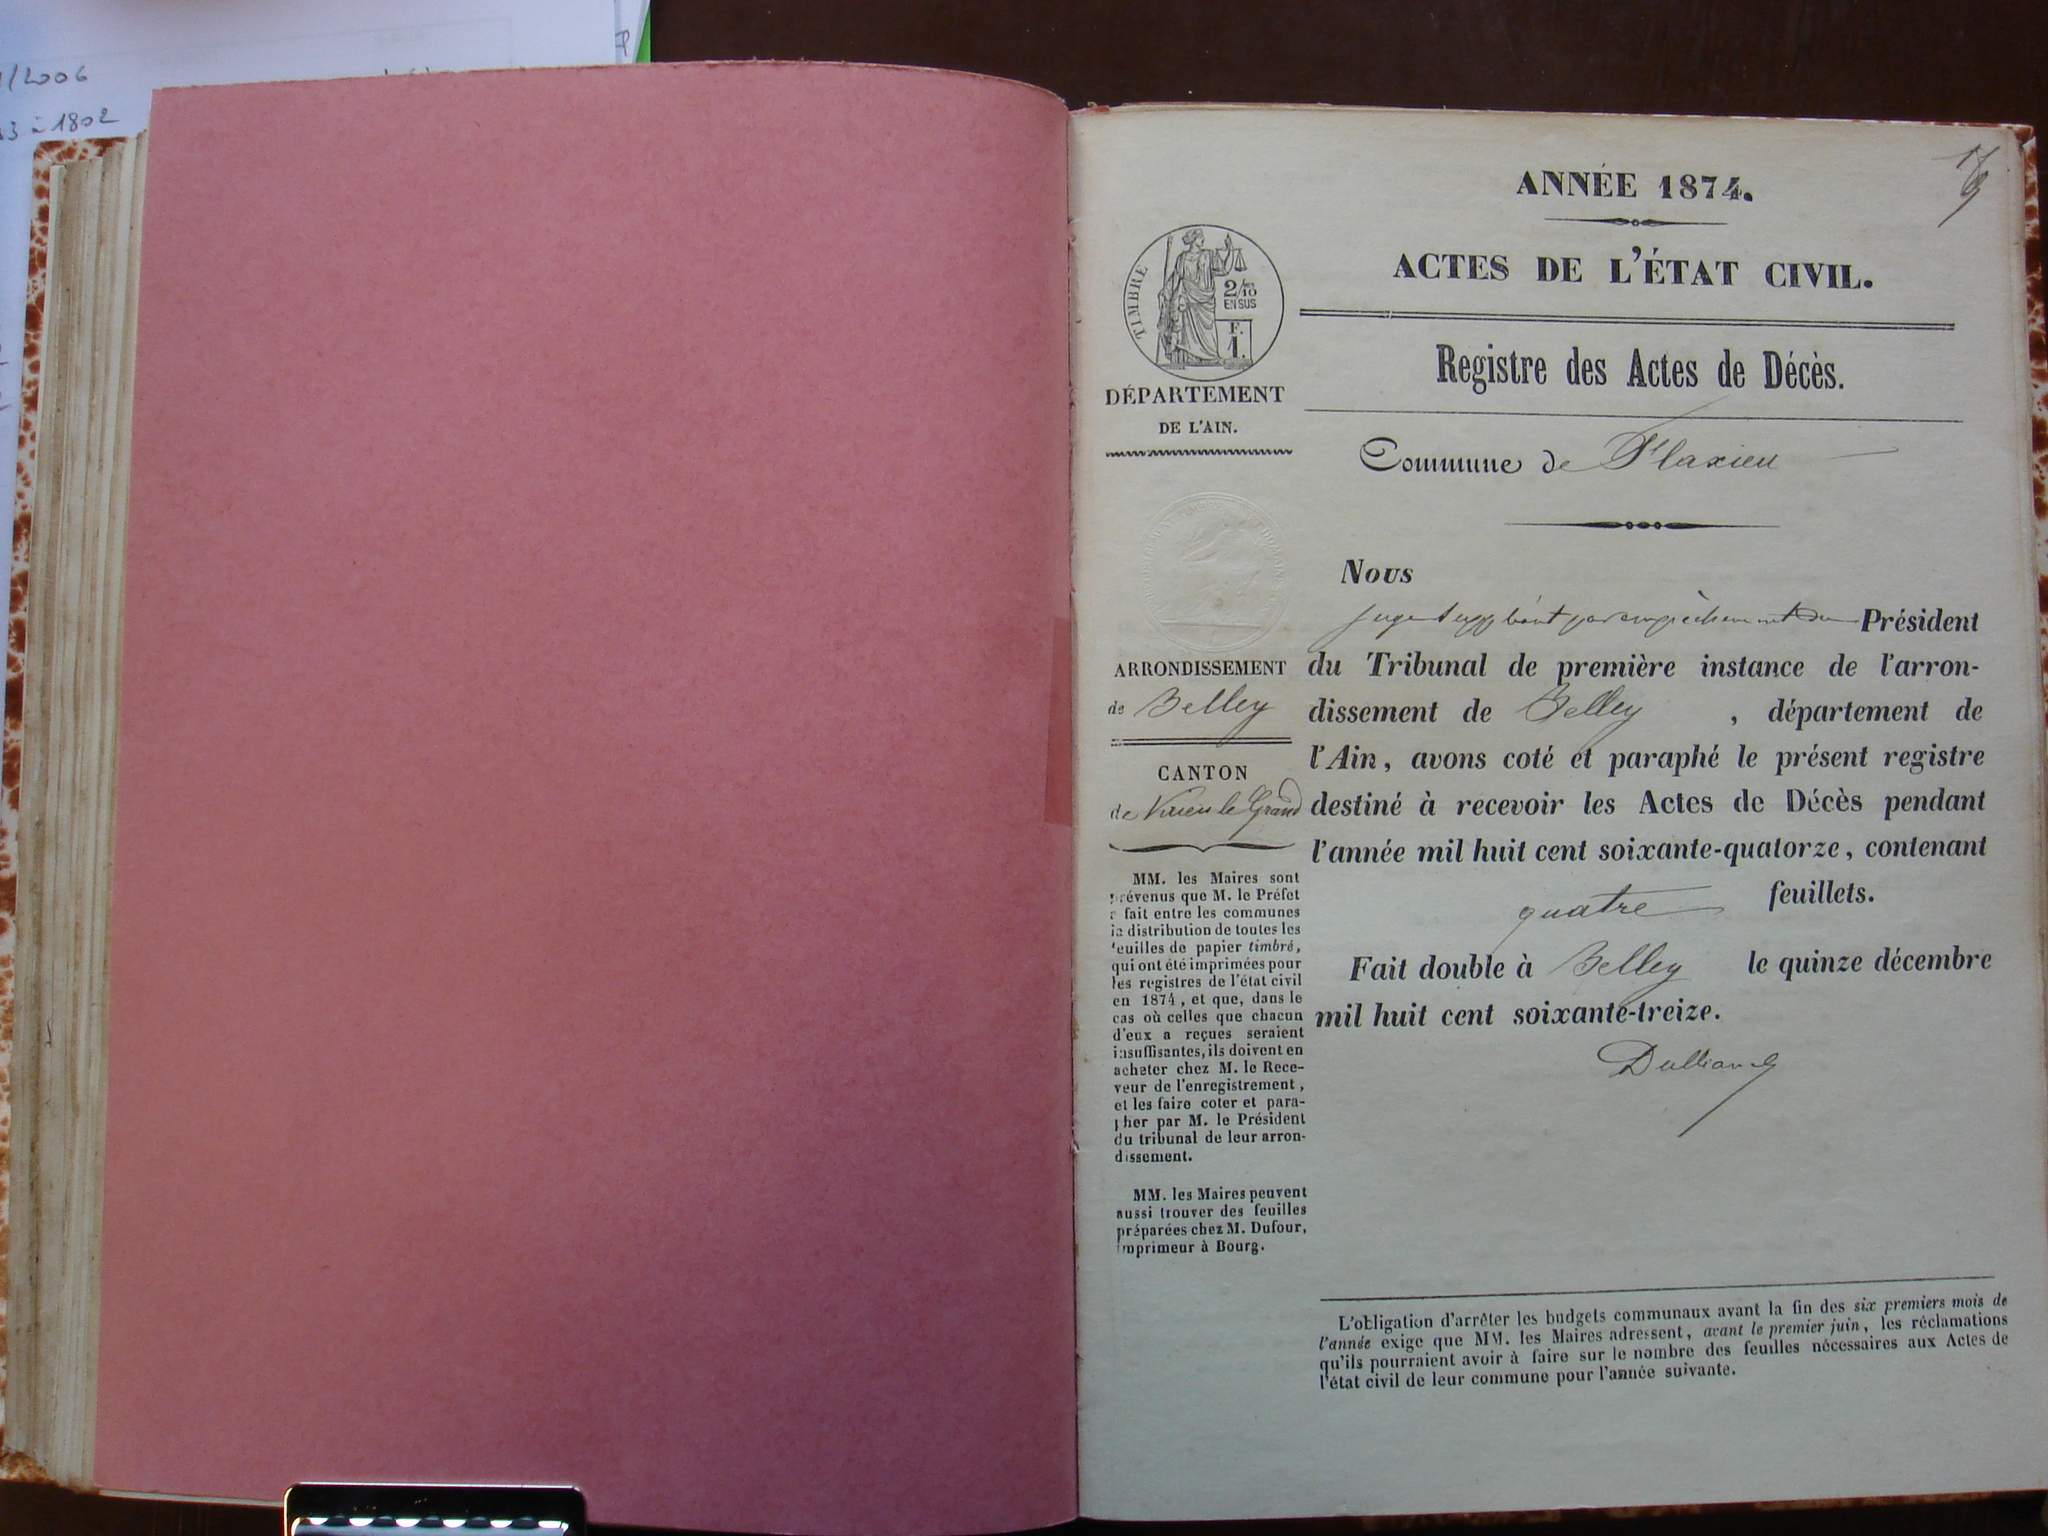 /2006
3 à 1802
ANNÉE 1874.
ACTES DE L'ÉTAT CIVIL.
Registre des Actes de Décès.
Commune de Flaxieu
TIMBRE
2/10
EN SUS
F.
1.
DÉPARTEMENT
DE L'AIN.
ARRONDISSEMENT
de Belley
CANTON
de Virieu le Grand
MM. les Maires sont
prévenus que M. le Préfet
a fait entre les communes
la distribution de toutes les
feuilles de papier timbré,
qui ont été imprimées pour
les registres de l'état civil
en 1874, et que, dans le
cas où celles que chacun
d'eux a reçues seraient
insuffisantes, ils doivent en
acheter chez M. le Rece-
veur de l'enregistrement,
et les faire coter et para-
pher par M. le Président
du tribunal de leur arron-
dissement.
MM. les Maires peuvent
aussi trouver des feuilles
préparées chez M. Dufour,
imprimeur à Bourg.
Nous
juge suppléant par empêchement du Président
du Tribunal de première instance de l'arron-
dissement de Belley, département de
l'Ain, avons coté et paraphé le présent registre
destiné à recevoir les Actes de Décès pendant
l'année mil huit cent soixante-quatorze, contenant
quatre feuillets.
Fait double à Belley le quinze décembre
mil huit cent soixante-treize.
L'obligation d'arrêter les budgets communaux avant la fin des six premiers mois de
l'année exige que MM. les Maires adressent, avant le premier juin, les réclamations
qu'ils pourraient avoir à faire sur le nombre des feuilles nécessaires aux Actes de
l'état civil de leur commune pour l'année suivante.